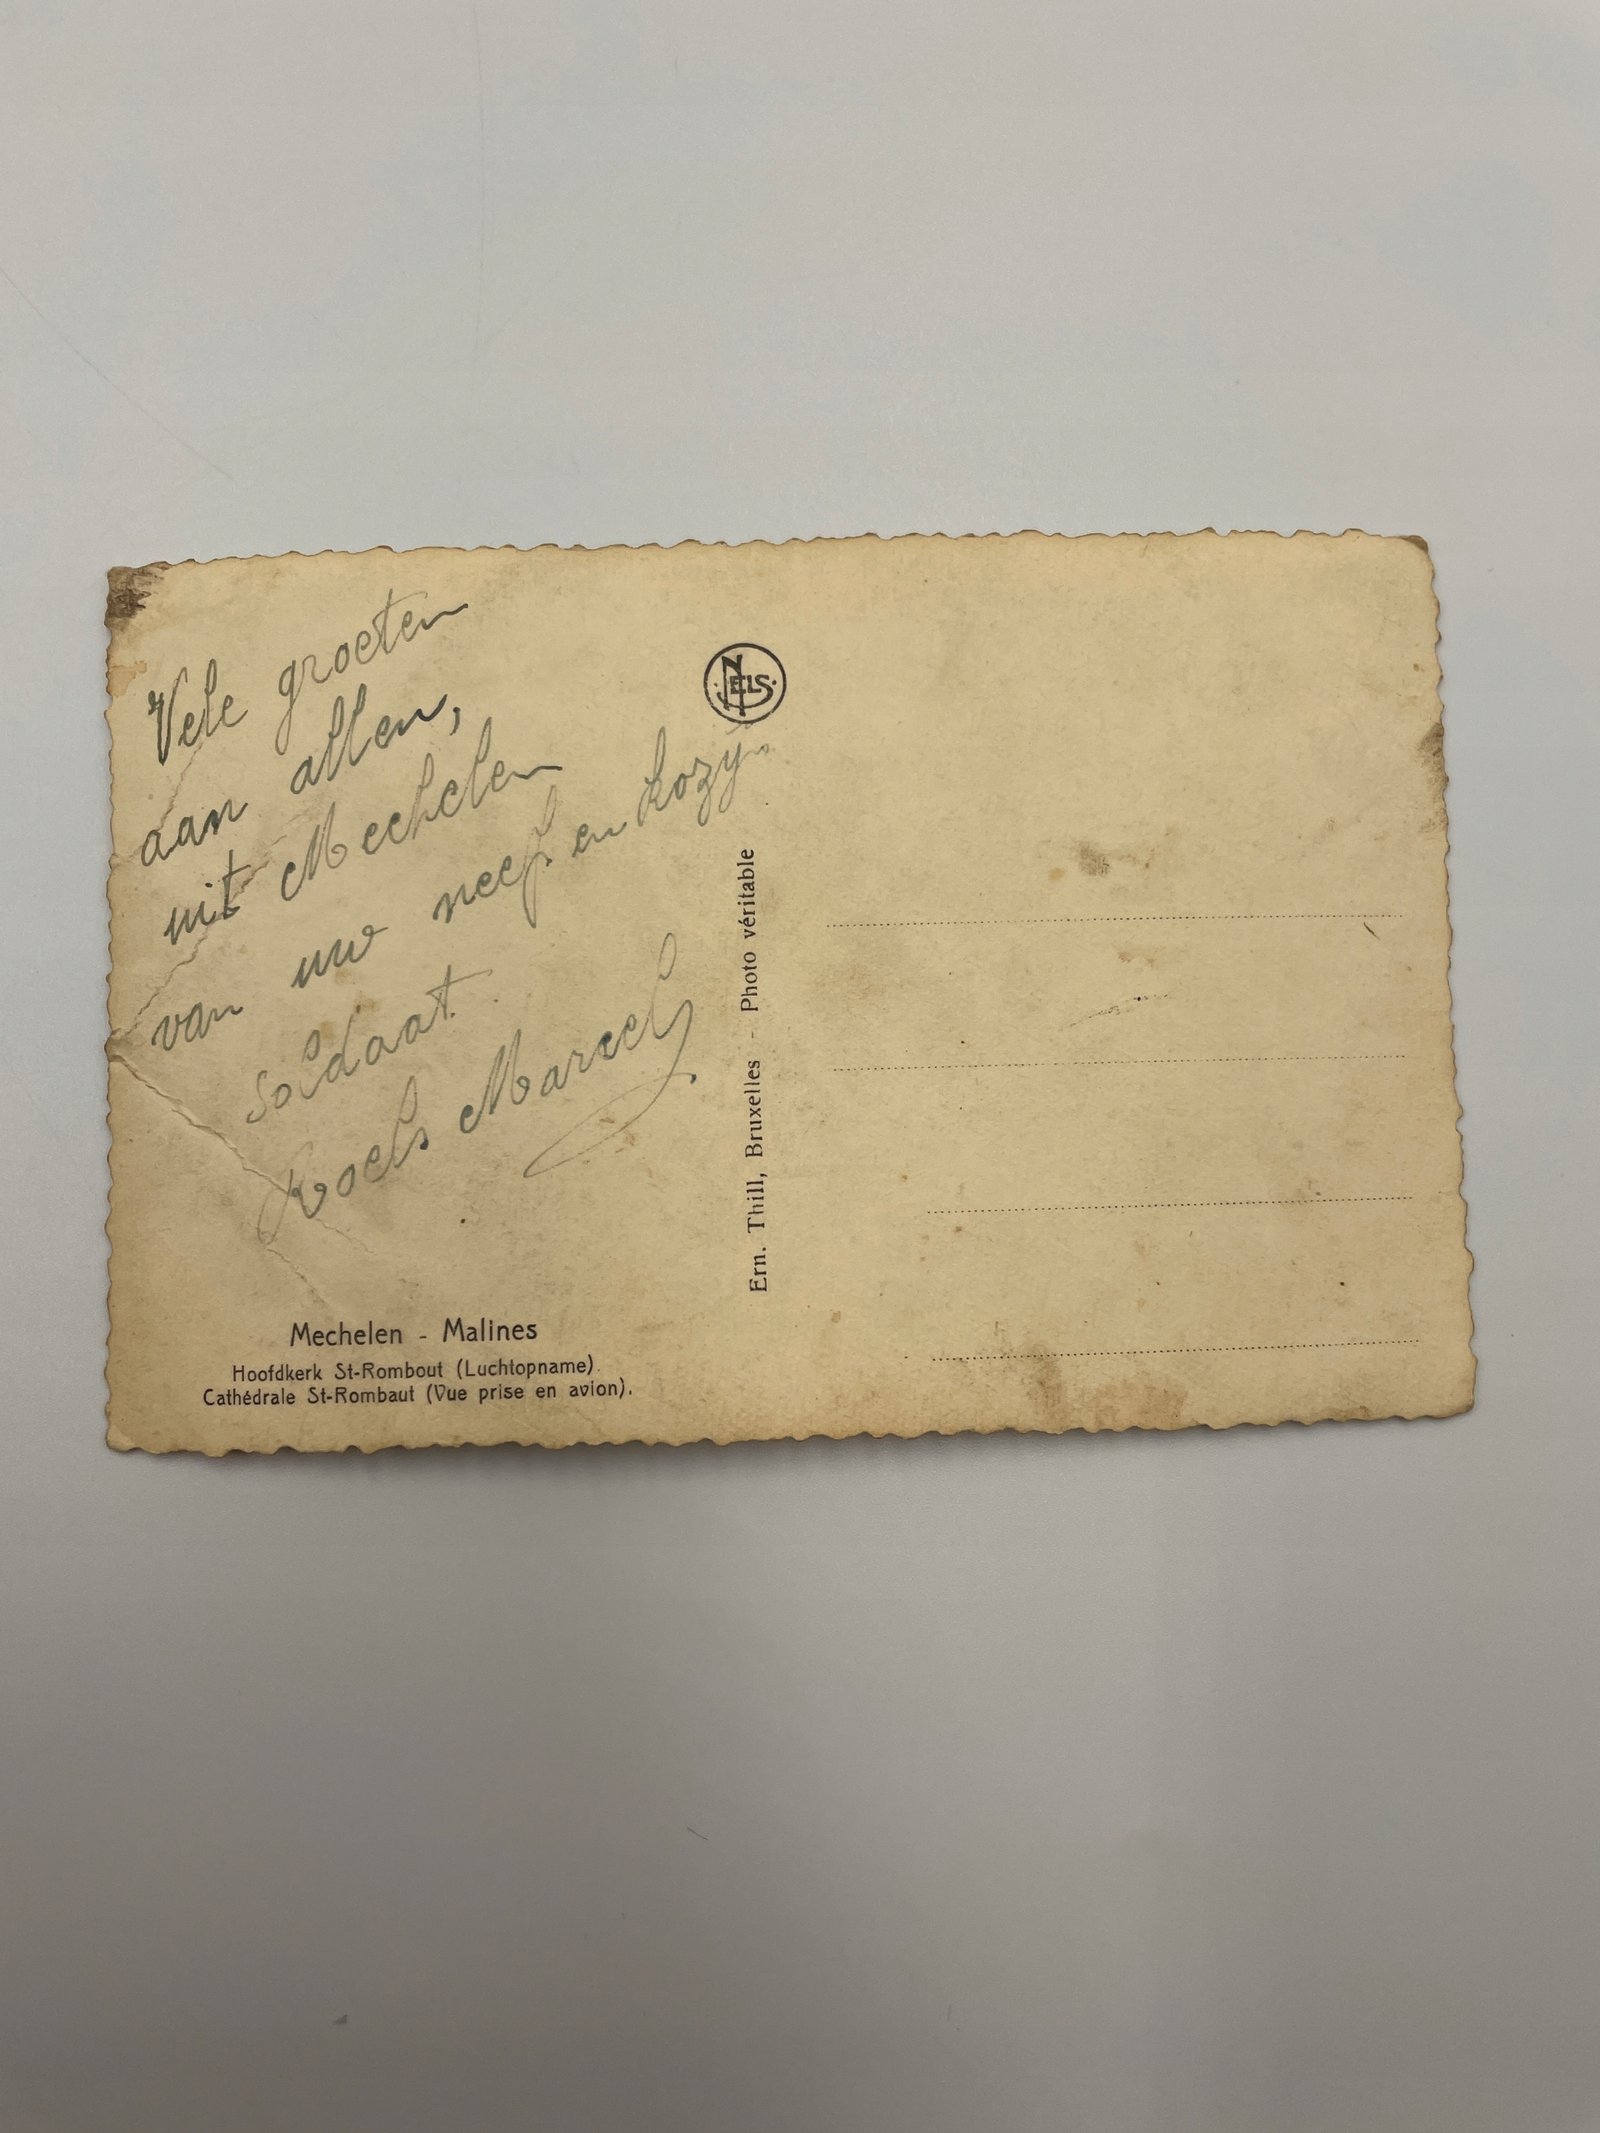 Vele groeten
aan allen,
uit Mechelen
van uw neef en kozyn
soldaat.
Roels Marcel
NELS
Ern. Thill, Bruxelles - Photo véritable
Mechelen - Malines
Hoofdkerk St-Rombout (Luchtopname).
Cathédrale St-Rombaut (Vue prise en avion).